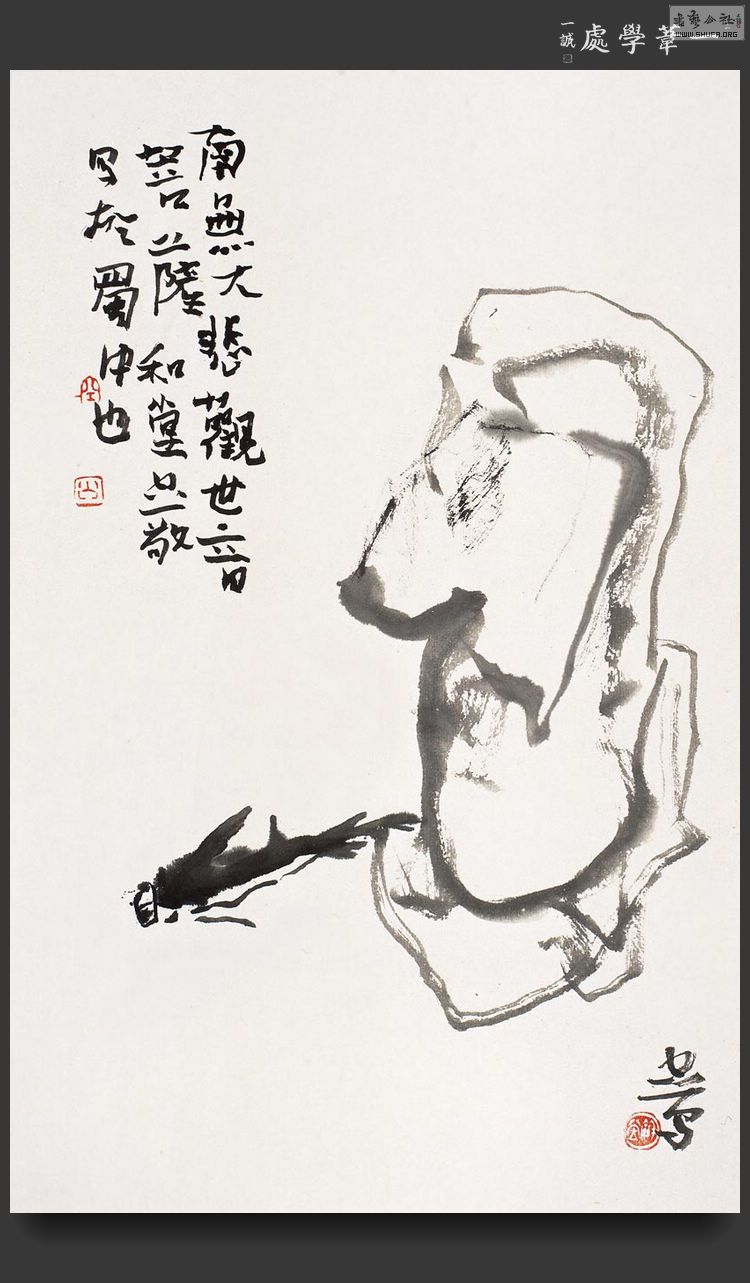 書藝公社
WWW.SHUFA.ORG
一葦學處
一誠
南無大悲觀世音
菩薩 和堂敬
写於蜀中也